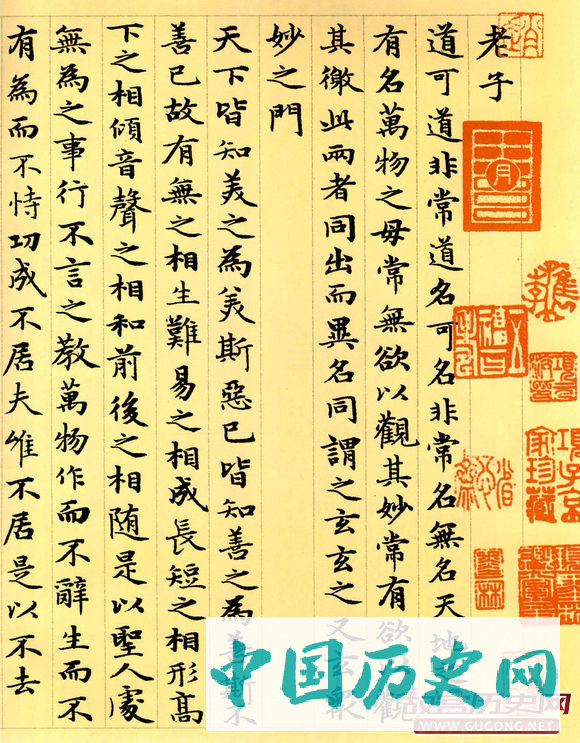 老子
道可道非常道名可名非常名無名天地
有名萬物之母常無欲以觀其妙常有欲觀
其徼此兩者同出而異名同謂之玄玄之又玄衆
妙之門
天下皆知美之為美斯惡已皆知善之為善斯不
善已故有無之相生難易之相成長短之相形髙
下之相傾音聲之相和前後之相随是以聖人處
無為之事行不言之教萬物作而不辭生而不
有為而不恃功成不居夫唯不居是以不去
項子京家珍藏
中国历史网
故宫历史网
WWW.GUGONG.NET